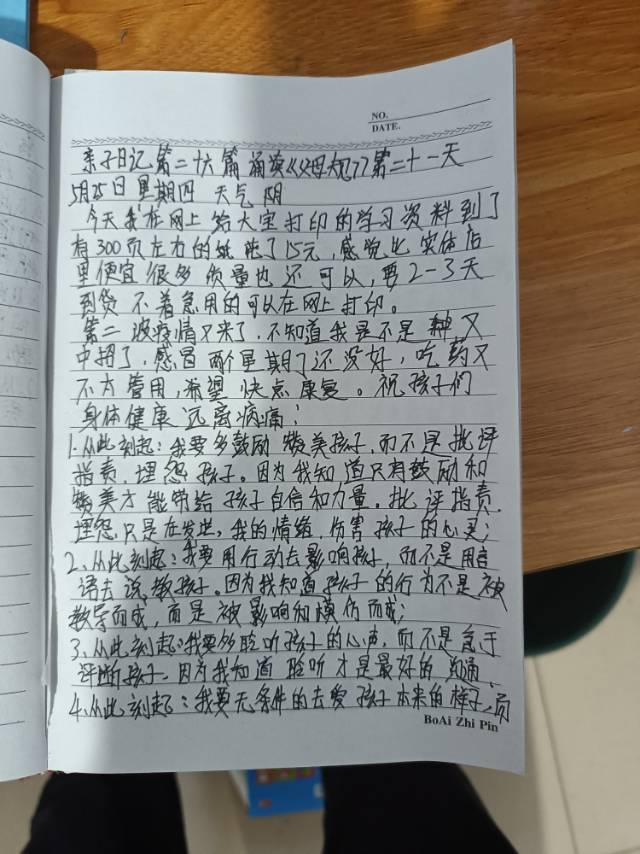 NO.
DATE.
亲子日记第二十六篇 诵读《父母规》第二十一天
5月25日 星期四 天气 阴
今天我在网上给大宝打印的学习资料到了
有300页左右的纸 花了15元，感觉比实体店
里便宜很多 质量也还可以，要2-3天
到货 不着急用的可以在网上打印。
第二波疫情又来了，不知道我是不是 又
中招了，感冒两个星期了还没好，吃药又
不大管用，希望快点康复。祝孩子们
身体健康 远离病痛；
1.从此刻起：我要多鼓励 赞美孩子，而不是批评
指责，埋怨孩子。因为我知道只有鼓励和
赞美才能带给孩子自信和力量。批评指责，
埋怨只是在发泄，我的情绪，伤害孩子的心灵；
2、从此刻起：我要用行动去影响孩子，而不是用言
语去说教孩子。因为我知道孩子的行为不是被
教导而成，而是被影响和模仿而成；
3、从此刻起：我要多聆听孩子的心声，而不是急于
评断孩子，因为我知道聆听才是最好的沟通、
4、从此刻起：我要无条件的去爱孩子本来的样子，而
BoAi Zhi Pin